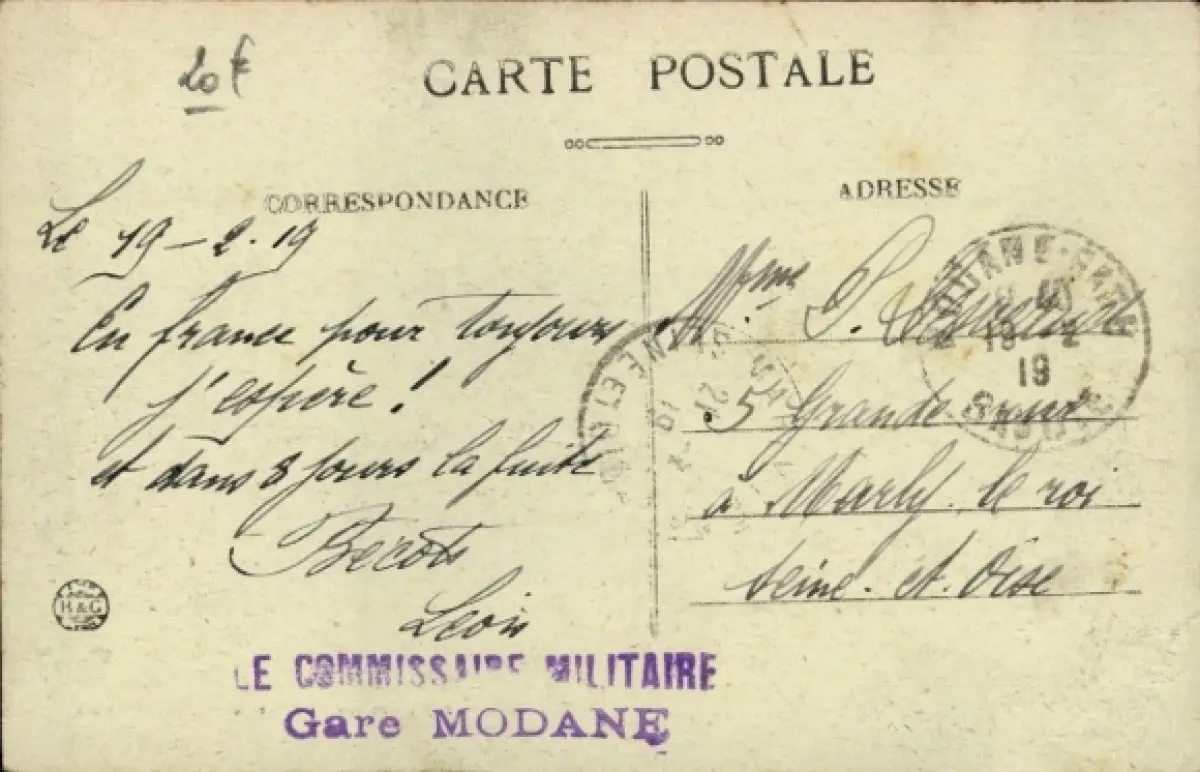 20 F
CARTE POSTALE
CORRESPONDANCE
ADRESSE
Le 19-2.19
En france pour toujours
j'espère!
et dans 8 jours la fuite
Becots
Léon
Mme P.
5 Grande rue
à Marly le roi
Seine-et-Oise
MODANE-GARE
19 2
19
SAVOIE
B & G
LE COMMISSAIRE MILITAIRE
Gare MODANE